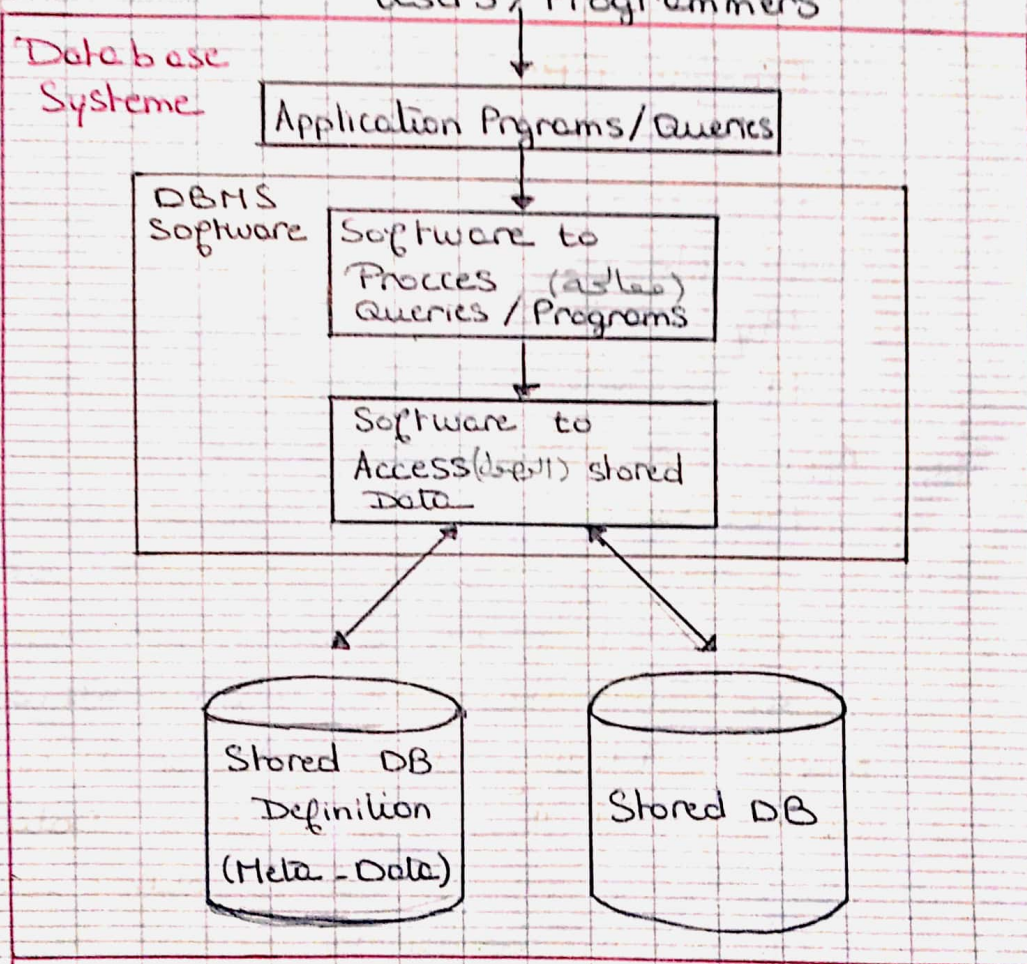 Users / Programmers
Database
Systeme
Application Prgrams/Queries
DBMS
Software
Software to
Procces (معالجة)
Queries / Programs
Software to
Access(الوصول) stored
Data
Stored DB
Definition
(Meta - Data)
Stored DB